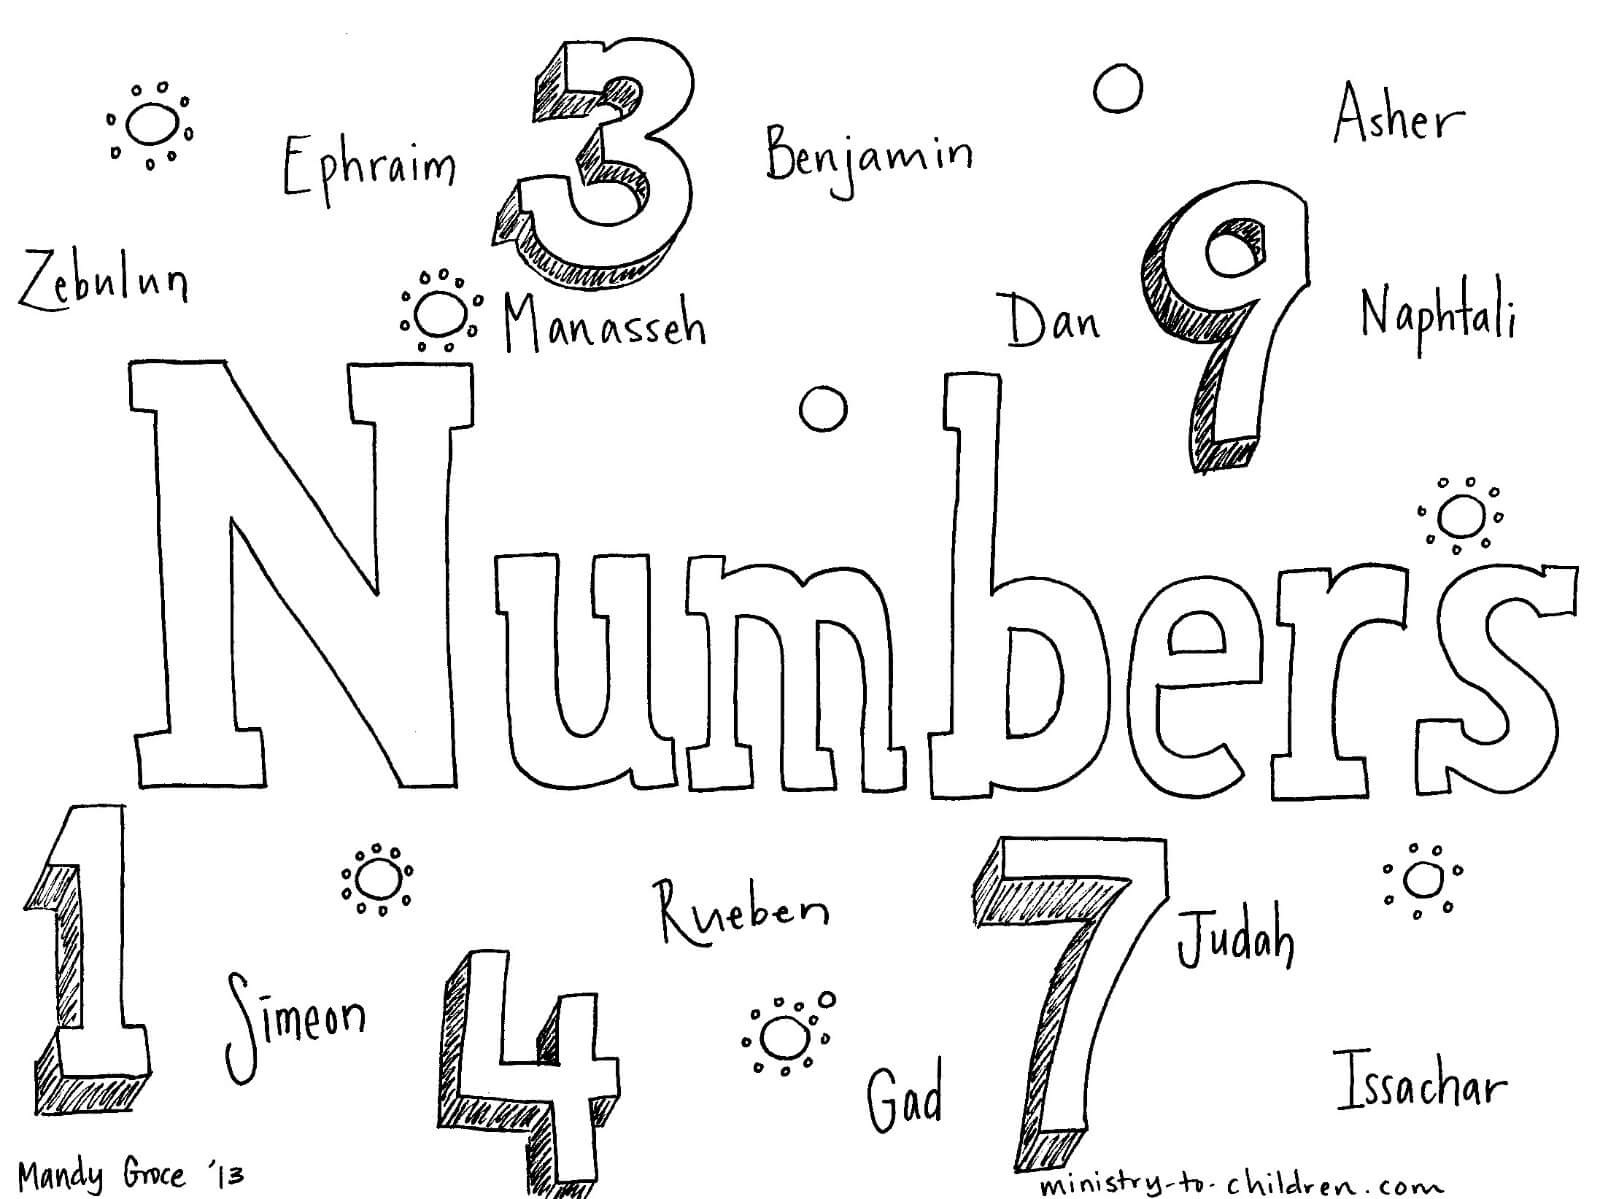 3
Asher
Ephraim
Benjamin
9
Zebulun
Manasseh
Dan
Naphtali
Numbers
1
7
Rueben
Judah
Simeon
4
Gad
Issachar
Mandy Groce '13
ministry-to-children.com